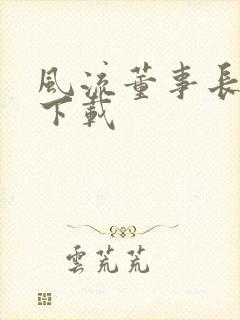 風流董事長
下載
雲荒荒